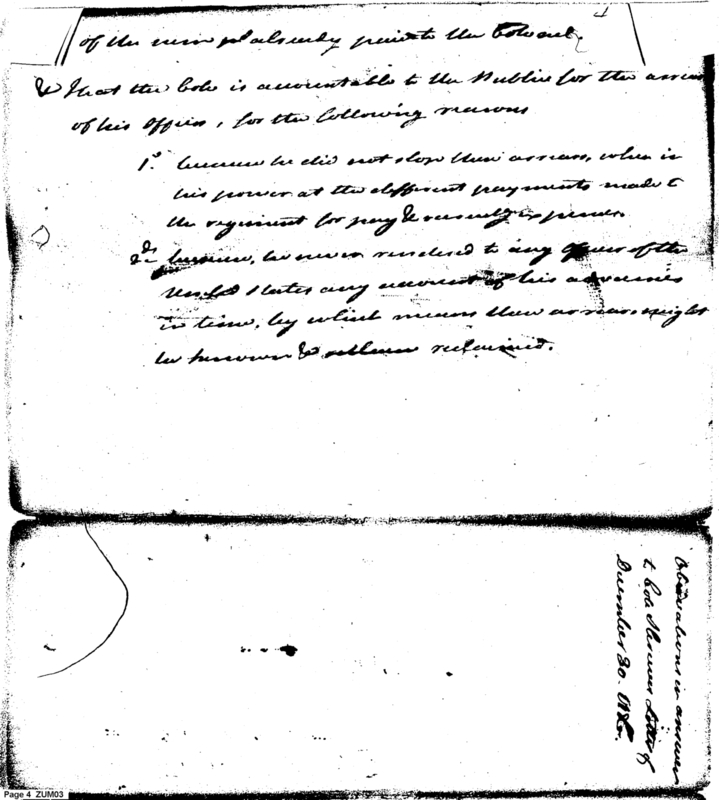 4
of the sum already paid to the Colonel,
& That the Colo is accountable to the Public for the arrears
of his Officers, for the following reasons
1st because he did not stop their arrears, when in
his power at the different payments made to
the regiment for pay & recruitg expences.
2dly because, he never rendered to any Officer of the
United States any account of his advances
in time, by which means their arrears might
be known & reclaimed.
Observations in answer
to Colo Letter of
December 30.
Page 4 ZUM03